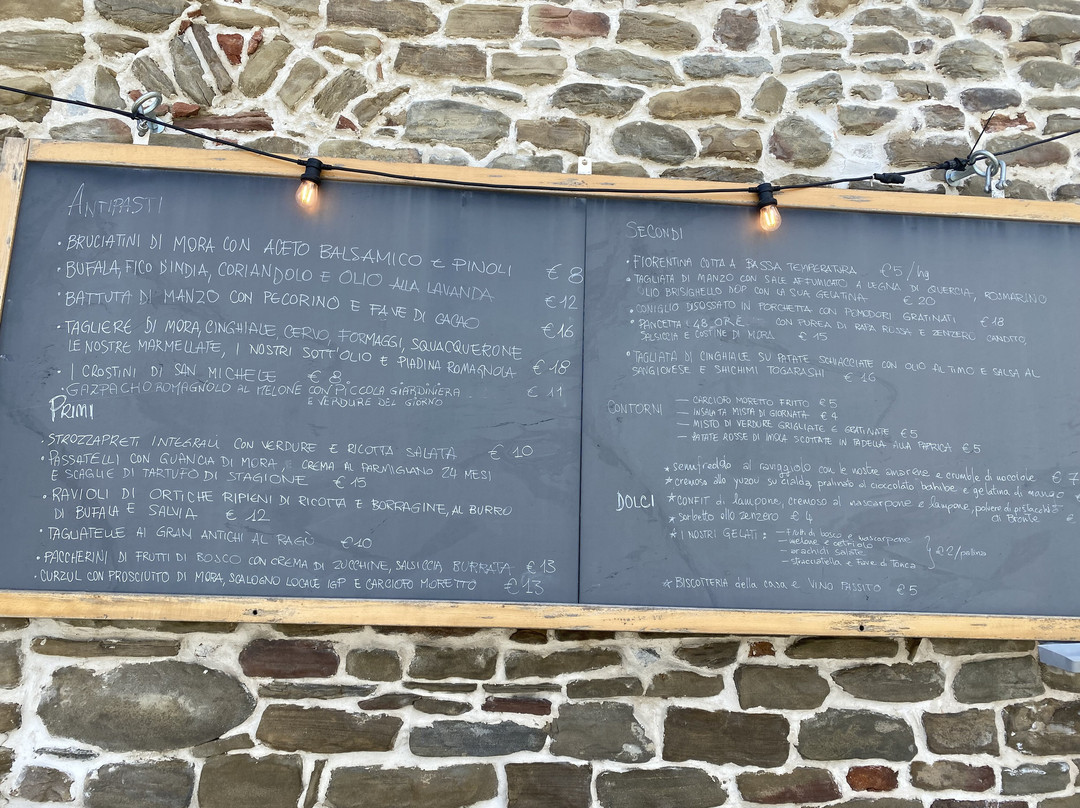 ANTIPASTI
• BRUCIATINI DI MORA CON ACETO BALSAMICO E PINOLI € 8
• BUFALA, FICO D'INDIA, CORIANDOLO E OLIO ALLA LAVANDA € 12
• BATTUTA DI MANZO CON PECORINO E FAVE DI CACAO € 16
• TAGLIERE DI MORA, CINGHIALE, CERVO, FORMAGGI, SQUACQUERONE
LE NOSTRE MARMELLATE, I NOSTRI SOTT'OLIO E PIADINA ROMAGNOLA € 18
• I CROSTINI DI SAN MICHELE € 8
• GAZPACHO ROMAGNOLO AL MELONE CON PICCOLA GIARDINIERA € 11
E VERDURE DEL GIORNO
PRIMI
• STROZZAPRETI INTEGRALI CON VERDURE E RICOTTA SALATA € 10
• PASSATELLI CON GUANCIA DI MORA, CREMA AL PARMIGIANO 24 MESI
E SCAGLIE DI TARTUFO DI STAGIONE € 15
• RAVIOLI DI ORTICHE RIPIENI DI RICOTTA E BORRAGINE, AL BURRO
DI BUFALA E SALVIA € 12
• TAGLIATELLE AI GRANI ANTICHI AL RAGÙ € 10
• PACCHERINI DI FRUTTI DI BOSCO CON CREMA DI ZUCCHINE, SALSICCIA, BURRATA € 13
• CURZUL CON PROSCIUTTO DI MORA, SCALOGNO LOCALE IGP E CARCIOFO MORETTO € 13
SECONDI
• FIORENTINA COTTA A BASSA TEMPERATURA € 5/hg
• TAGLIATA DI MANZO CON SALE AFFUMICATO A LEGNA DI QUERCIA, ROSMARINO
OLIO BRISIGHELLO DOP CON LA SUA GELATINA € 20
• CONIGLIO DISOSSATO IN PORCHETTA CON POMODORI GRATINATI € 18
• PANCETTA "48 ORE" CON PUREA DI RAPA ROSSA E ZENZERO CANDITO,
SALSICCIA E COSTINE DI MORA € 15
• TAGLIATA DI CINGHIALE SU PATATE SCHIACCIATE CON OLIO AL TIMO E SALSA AL
SANGIOVESE E SHICHIMI TOGARASHI € 16
CONTORNI
— CARCIOFO MORETTO FRITTO € 5
— INSALATA MISTA DI GIORNATA € 4
— MISTO DI VERDURE GRIGLIATE E GRATINATE € 5
— PATATE ROSSE DI IMOLA SCOTTATE IN PADELLA ALLA PAPRICA € 5
DOLCI
* semifreddo al raviggiolo con le nostre amarene e crumble di nocciole € 7
* cremoso allo yuzu su cialda, pralinato al cioccolato bahibe e gelatina di mango
* CONFIT di lampone, cremoso al mascarpone e lampone, polvere di pistacchio
di Bronte €
* sorbetto allo zenzero € 4
* I NOSTRI GELATI: — Frutti di bosco e mascarpone
— melone e cetriolo
— arachidi salate
— stracciatella e Fave di Tonca
€ 2/pallina
* BISCOTTERIA della casa e VINO PASSITO € 5